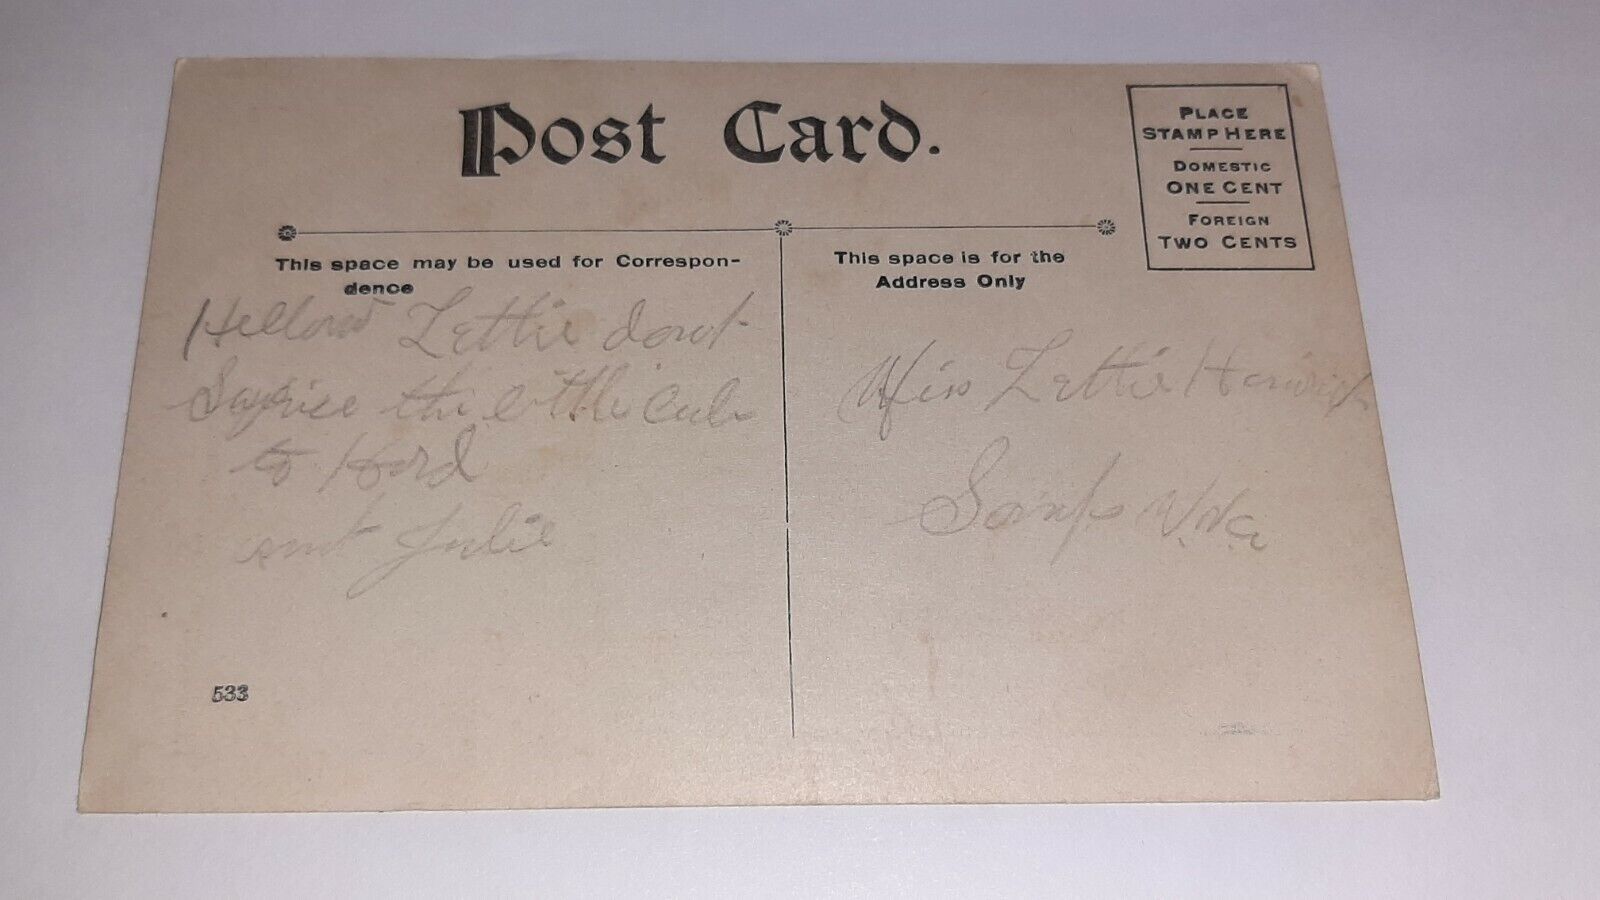 Post Card.
PLACE
STAMP HERE
DOMESTIC
ONE CENT
FOREIGN
TWO CENTS
This space may be used for Correspon-
dence
This space is for the
Address Only
Hellow Lettie dont
Surprise the little Cub
to Hard
Julie
Miss Lettie
W. Va
533